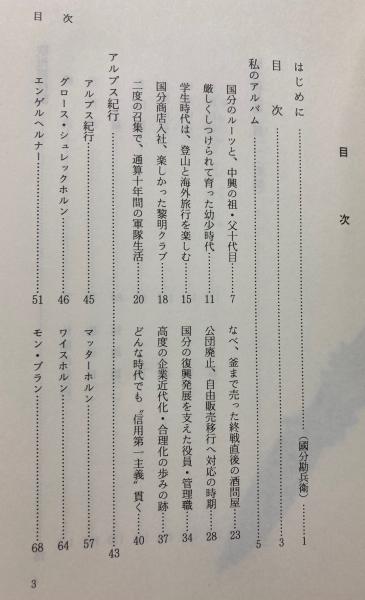 目次
目　次
はじめに……（國分勘兵衛）…1
目　次……3
私のアルバム……5
国分のルーツと、中興の祖・父十代目……7
厳しくしつけられて育った幼少時代……11
学生時代は、登山と海外旅行を楽しむ……15
国分商店入社、楽しかった黎明クラブ……18
二度の召集で、通算十年間の軍隊生活……20
なべ、釜まで売った終戦直後の酒問屋……23
公団廃止、自由販売移行へ対応の時期……28
国分の復興発展を支えた役員・管理職……34
高度の企業近代化・合理化の歩みの跡……37
どんな時代でも〝信用第一主義〟貫く……40
アルプス紀行……43
アルプス紀行……45
グロース・シュレックホルン……46
エンゲルヘルナー……51
マッターホルン……57
ワイスホルン……64
モン・ブラン……68
3